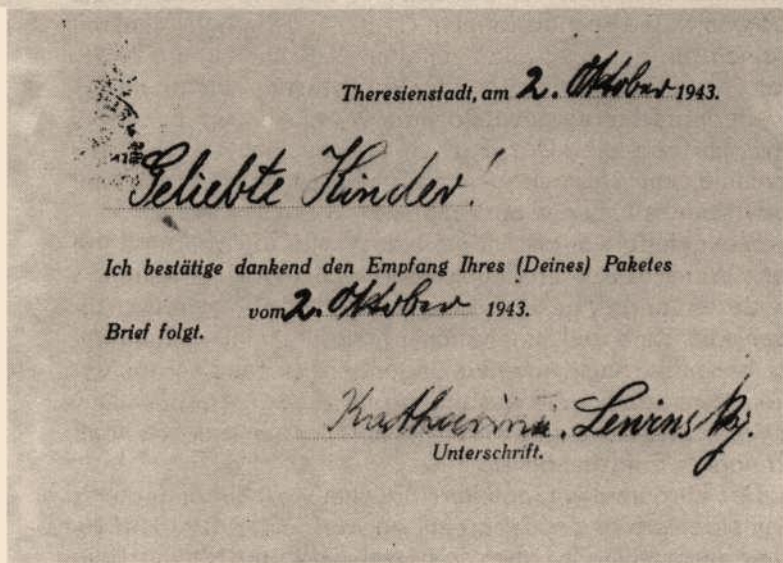 Theresienstadt, am 2. Oktober 1943.
Geliebte Kinder!
Ich bestätige dankend den Empfang Ihres (Deines) Paketes
vom 2. Oktober 1943.
Brief folgt.
Katharina Lewinsky.
Unterschrift.